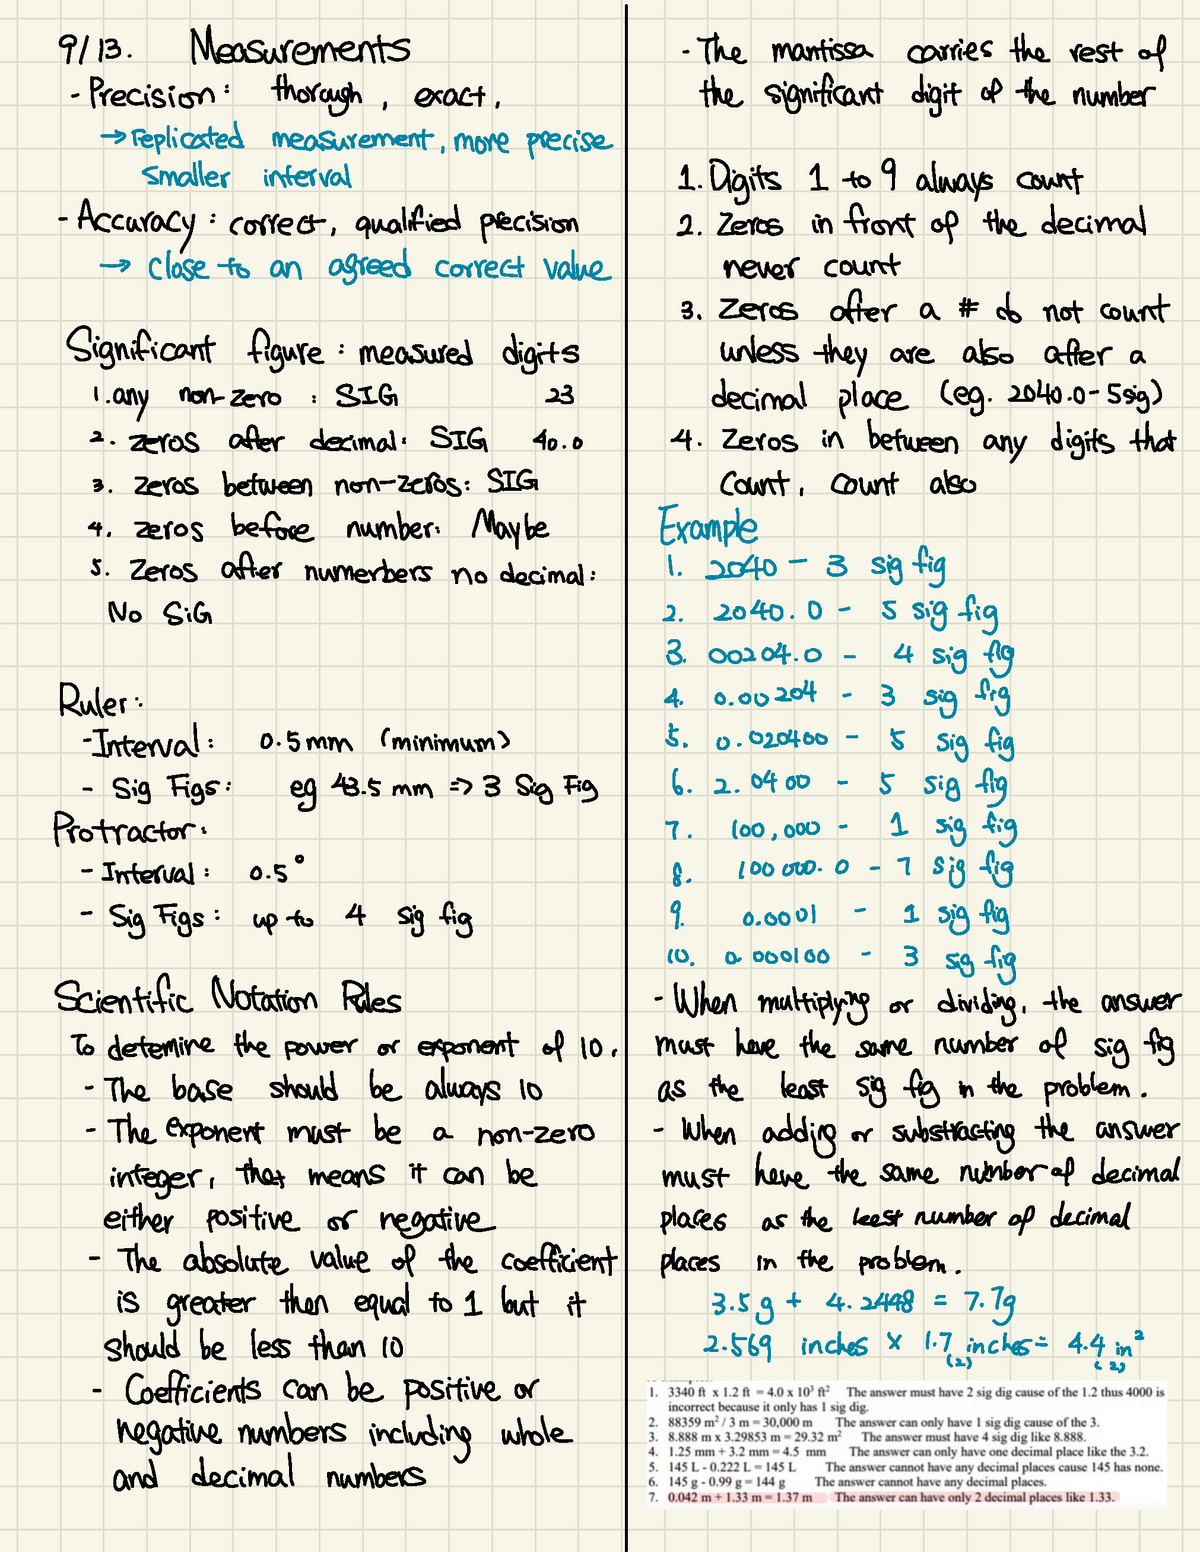 9/13. Measurements
- Precision: thorough, exact,
→ replicated measurement, more precise
smaller interval
- Accuracy: correct, qualified precision
→ close to an agreed correct value
Significant figure: measured digits
1. any non-zero : SIG 23
2. zeros after decimal: SIG 40.0
3. zeros between non-zeros: SIG
4. zeros before number: Maybe
5. Zeros after numerbers no decimal:
No SiG
Ruler:
- Interval: 0.5mm (minimum)
- Sig Figs: eg 43.5 mm => 3 Sig Fig
Protractor:
- Interval: 0.5°
- Sig Figs: up to 4 sig fig
Scientific Notation Rules
To detemine the power or exponent of 10,
- The base should be always 10
- The exponent must be a non-zero
integer, that means it can be
either positive or negative
- The absolute value of the coefficient
is greater then equal to 1 but it
should be less than 10
- Coefficients can be positive or
negative numbers including whole
and decimal numbers
- The mantissa carries the rest of
the significant digit of the number
1. Digits 1 to 9 always count
2. Zeros in front of the decimal
never count
3. Zeros after a # do not count
unless they are also after a
decimal place (eg. 2040.0 - 5sig)
4. Zeros in between any digits that
count, count also
Example
1. 2040 - 3 sig fig
2. 2040.0 - 5 sig fig
3. 00204.0 - 4 sig fig
4. 0.00204 - 3 sig fig
5. 0.020400 - 5 sig fig
6. 2.0400 - 5 sig fig
7. 100,000 - 1 sig fig
8. 100 000.0 - 7 sig fig
9. 0.0001 - 1 sig fig
10. 0.000100 - 3 sig fig
- When multiplying or dividing, the answer
must have the same number of sig fig
as the least sig fig in the problem.
- When adding or substracting the answer
must have the same number of decimal
places as the least number of decimal
places in the problem.
3.5g + 4.2448 = 7.7g
2.569 inches × 1.7 inches = 4.4 in²
(2) (2)
1. 3340 ft x 1.2 ft = 4.0 x 10³ ft² The answer must have 2 sig dig cause of the 1.2 thus 4000 is
incorrect because it only has 1 sig dig.
2. 88359 m² / 3 m = 30,000 m The answer can only have 1 sig dig cause of the 3.
3. 8.888 m x 3.29853 m = 29.32 m² The answer must have 4 sig dig like 8.888.
4. 1.25 mm + 3.2 mm = 4.5 mm The answer can only have one decimal place like the 3.2.
5. 145 L - 0.222 L = 145 L The answer cannot have any decimal places cause 145 has none.
6. 145 g - 0.99 g = 144 g The answer cannot have any decimal places.
7. 0.042 m + 1.33 m = 1.37 m The answer can have only 2 decimal places like 1.33.